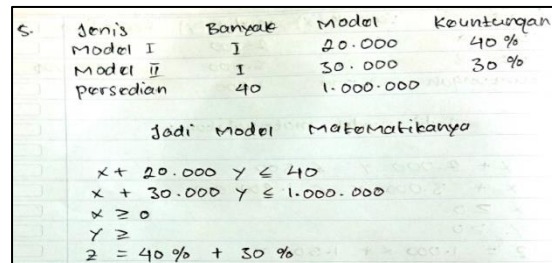 5. Jenis Banyak Model Keuntungan
Model I I 20.000 40 %
Model II I 30.000 30 %
Persedian 40 1.000.000
Jadi Model Matematikanya
x + 20.000 y ≤ 40
x + 30.000 y ≤ 1.000.000
x ≥ 0
y ≥
z = 40 % + 30 %